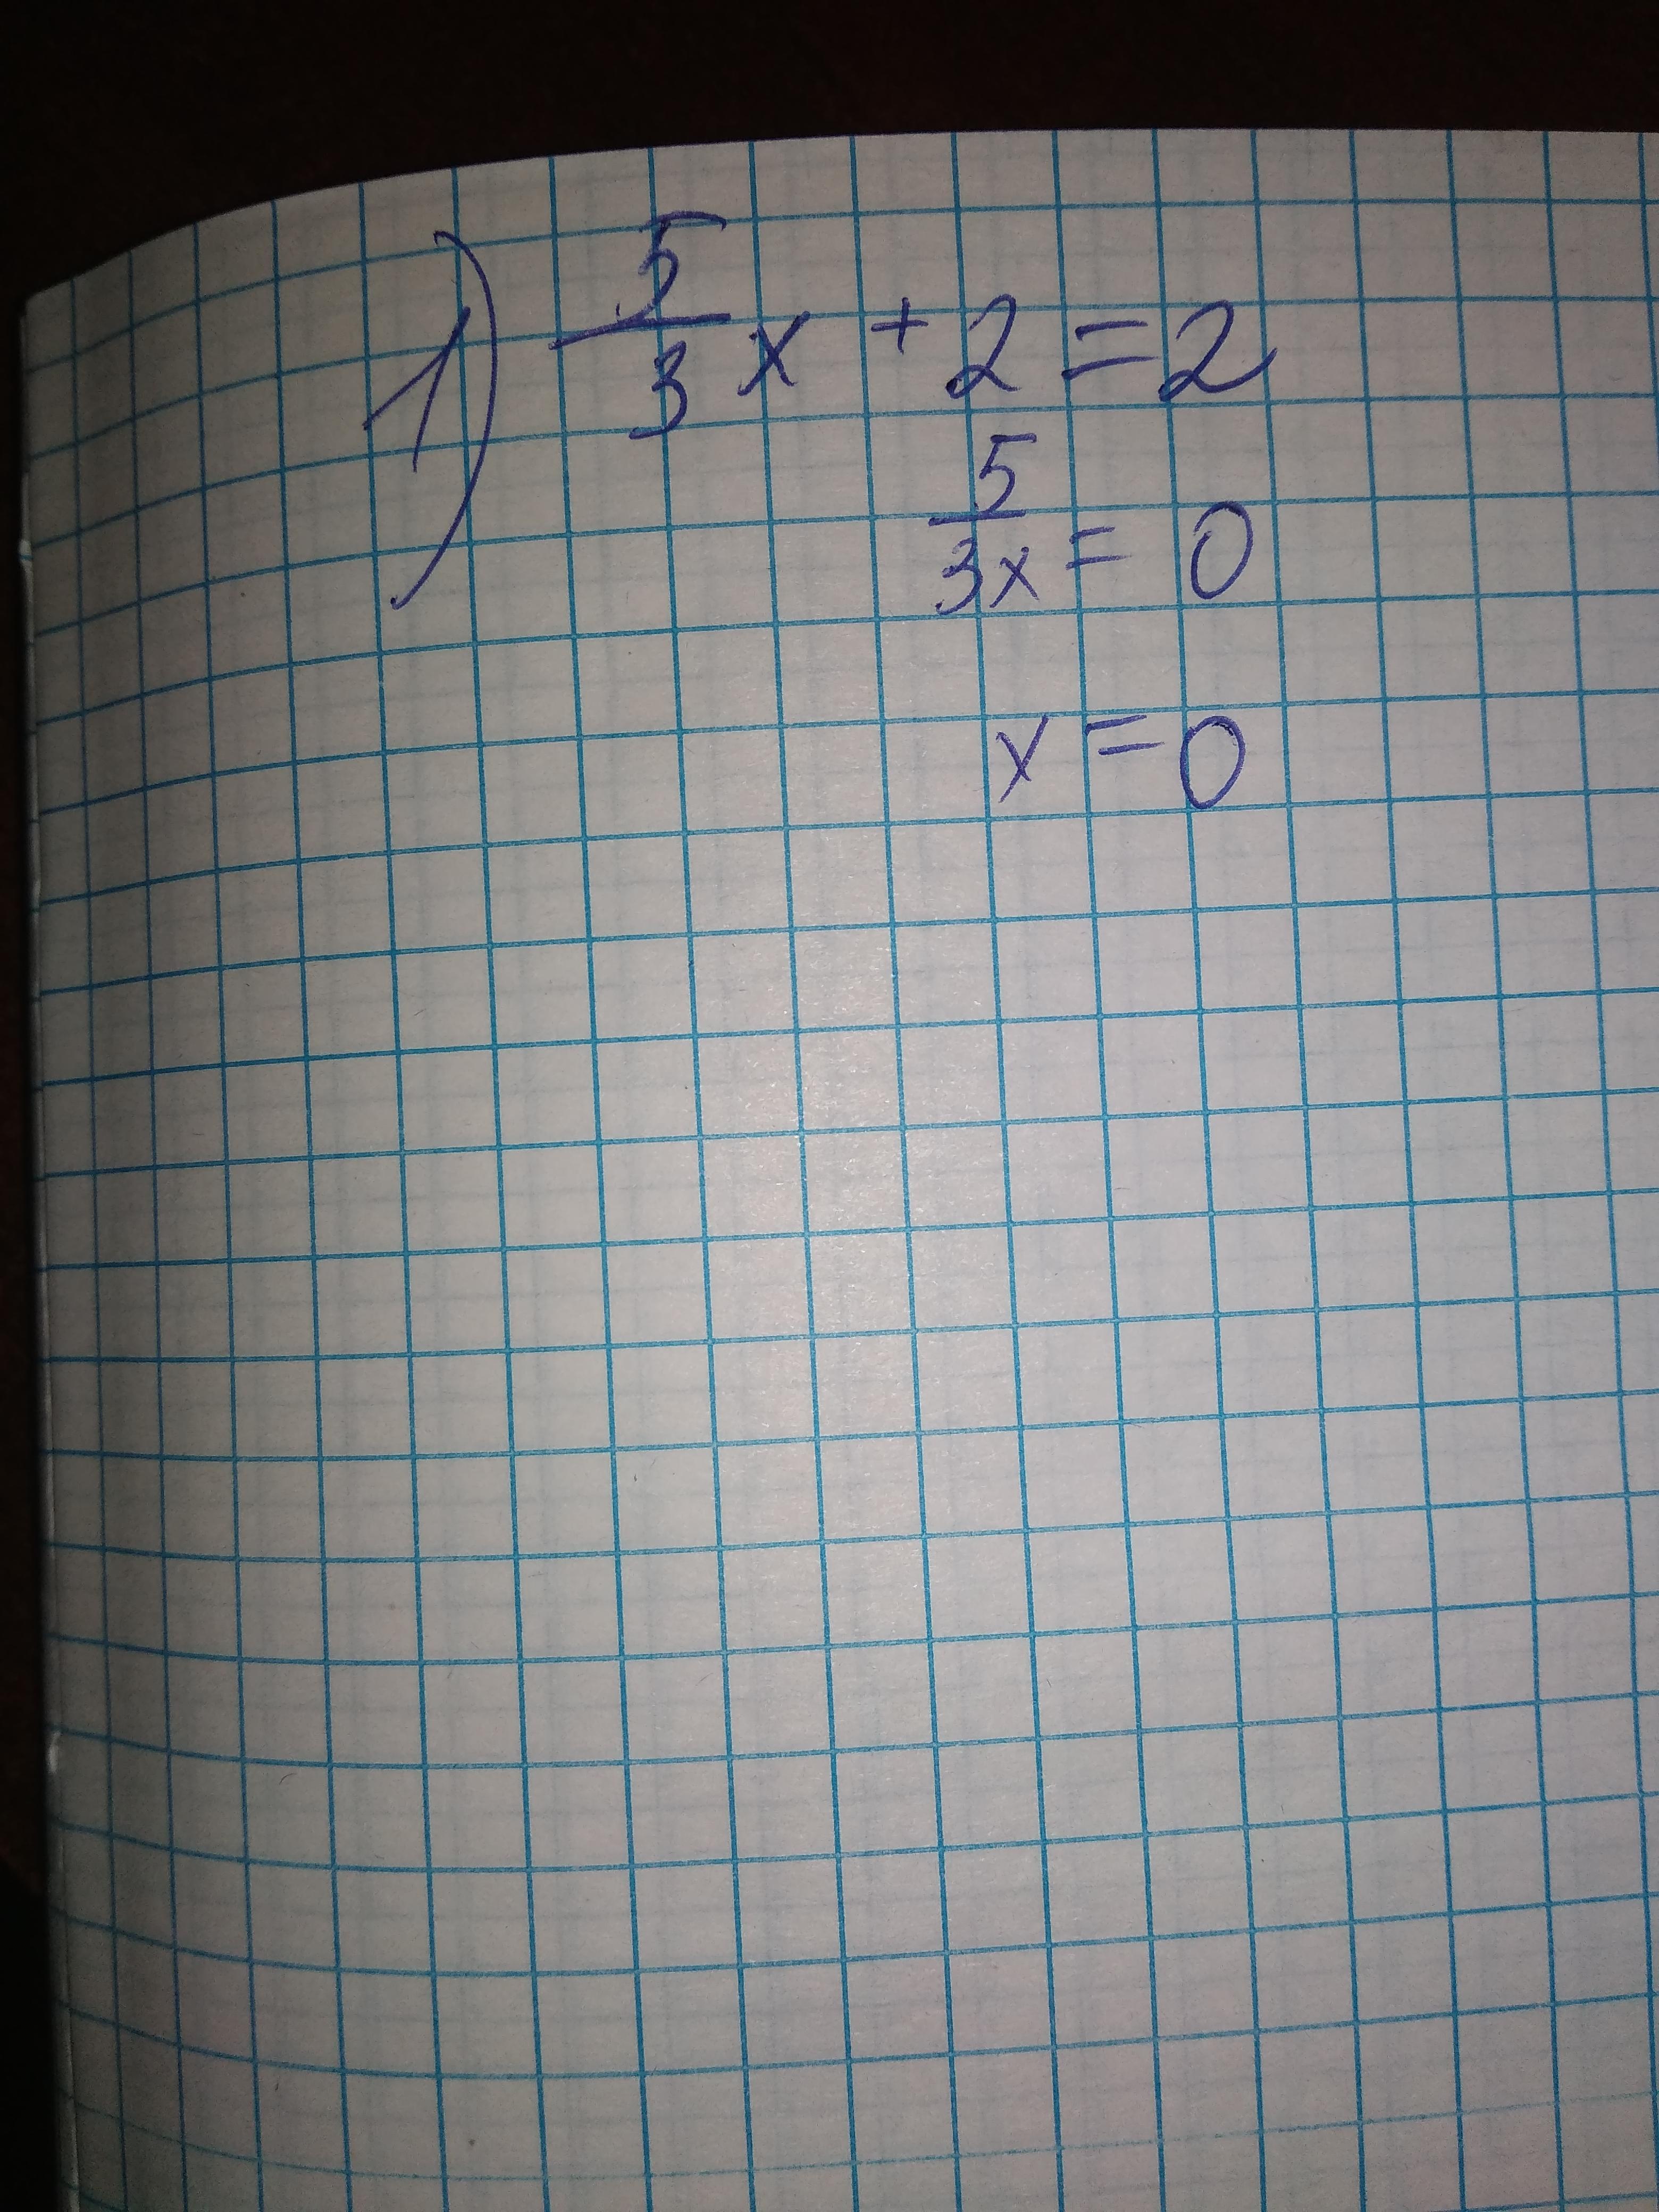 1) 5/3 x + 2 = 2
5/3x = 0
x = 0